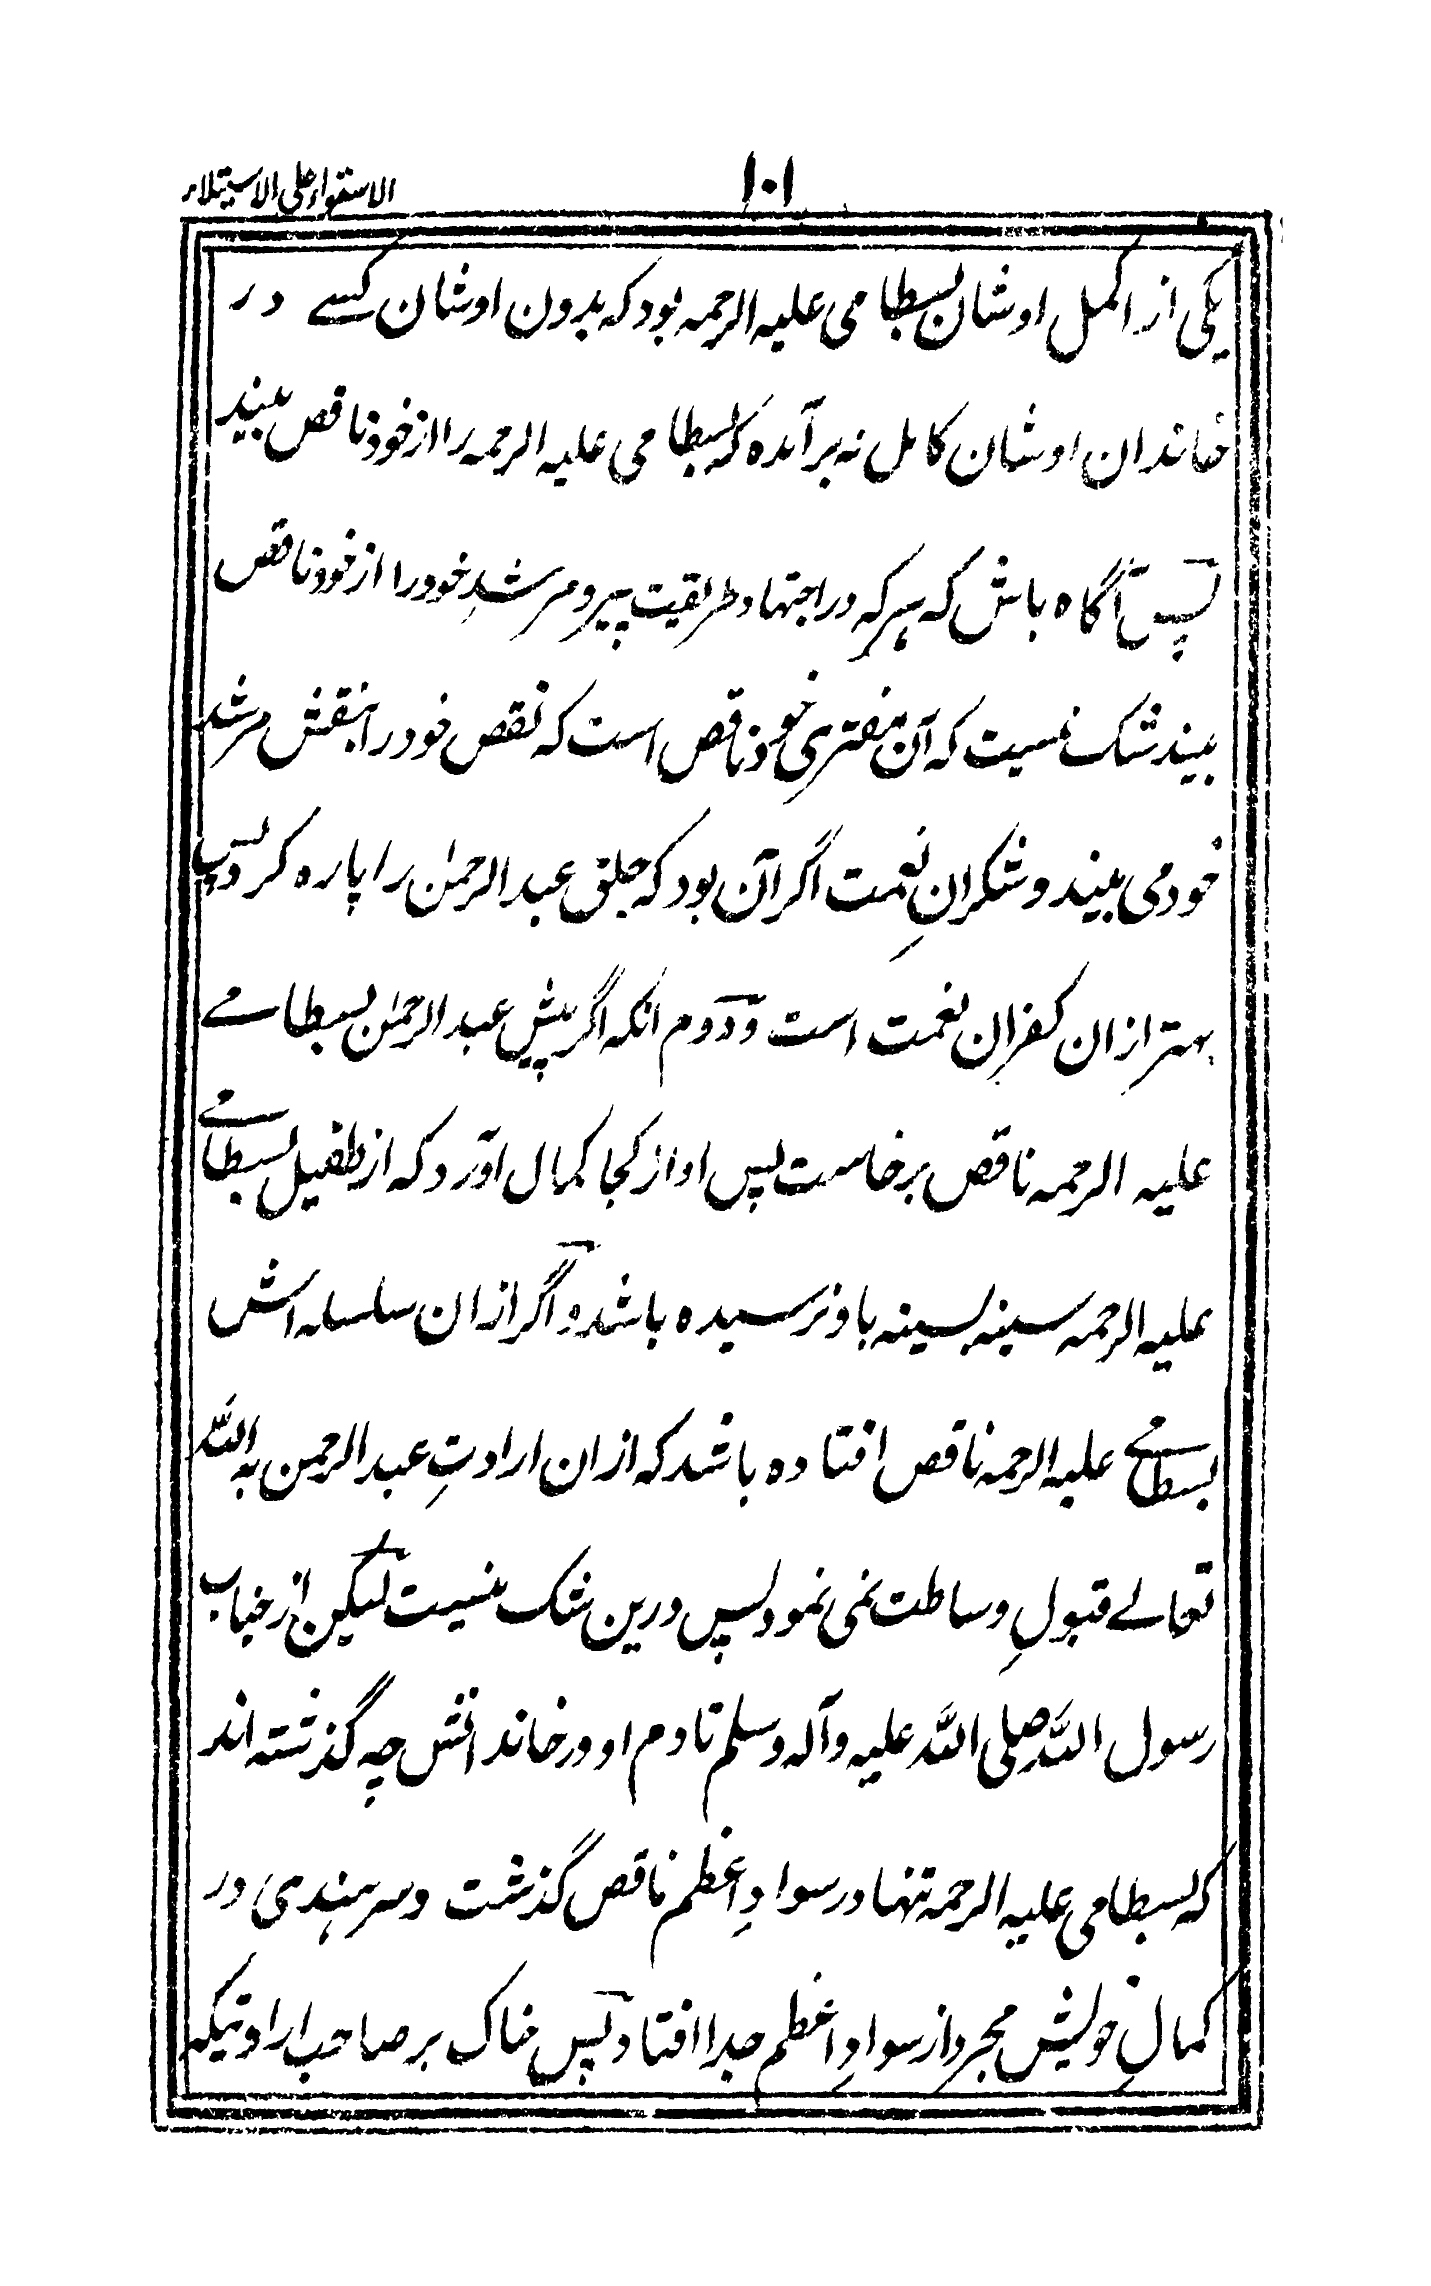 الاستواء علی الاستیلاء
۱۰۱
یکی از اکمل اوشان بسطامی علیه الرحمه بود که بدون اوشان کسے در
خاندان اوشان کامل نه برآمده که بسطامی علیه الرحمه را از خود ناقص بیند
پس آگاه باش که هر که در اجتهاد طریقیت پیر و مرشدِ خود را از خود ناقص
بیند شک نیست که آن مفتریِ خود ناقص است که نقص خود را بنقش مرشد
خود می بیند و شکرانِ نعمت اگر آن بود که حلق عبد الرحمٰن را پاره کرد پس
بهتر ازان کفران نعمت است و دوم انکه اگر پیش عبد الرحمٰن بسطامے
علیه الرحمه ناقص برخاست پس او از کجا کمال آورد که از طفیل بسطامے
علیه الرحمه سینه بسینه باو نرسیده باشد و اگر ازان سلسله اش
بسطامے علیه الرحمه ناقص افتاده باشد که ازان ارادتِ عبد الرحمن به الله
تعالے قبولِ وساطت نمی نمود پس درین شک نیست لیکن از جناب
رسول الله صلی الله علیه وآله وسلم تا دم او در خاندانش چه گذشته اند
که بسطامی علیه الرحمه تنها در سوادِ اعظم ناقص گذشت و سرهندی در
کمالِ خویش مجرد از سوادِ اعظم جدا افتاد پس خاک بر صاحب ارادتیکه